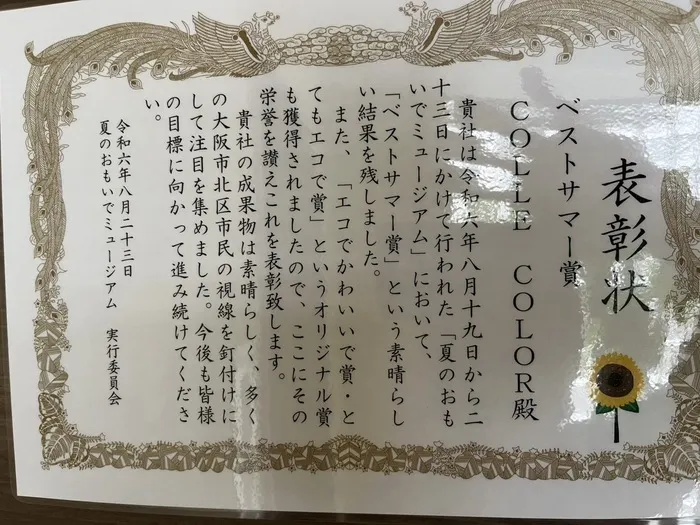 表彰状
ベストサマー賞
COLLE COLOR殿
貴社は令和六年八月十九日から二
十三日にかけて行われた「夏のおも
いでミュージアム」において、
「ベストサマー賞」という素晴らし
い結果を残しました。
また、「エコでかわいいで賞・と
てもエコで賞」というオリジナル賞
も獲得されましたので、ここにその
栄誉を讃えこれを表彰致します。
貴社の成果物は素晴らしく、多く
の大阪市北区市民の視線を釘付けに
して注目を集めました。今後も皆様
の目標に向かって進み続けてくださ
い。
令和六年八月二十三日
夏のおもいでミュージアム 実行委員会